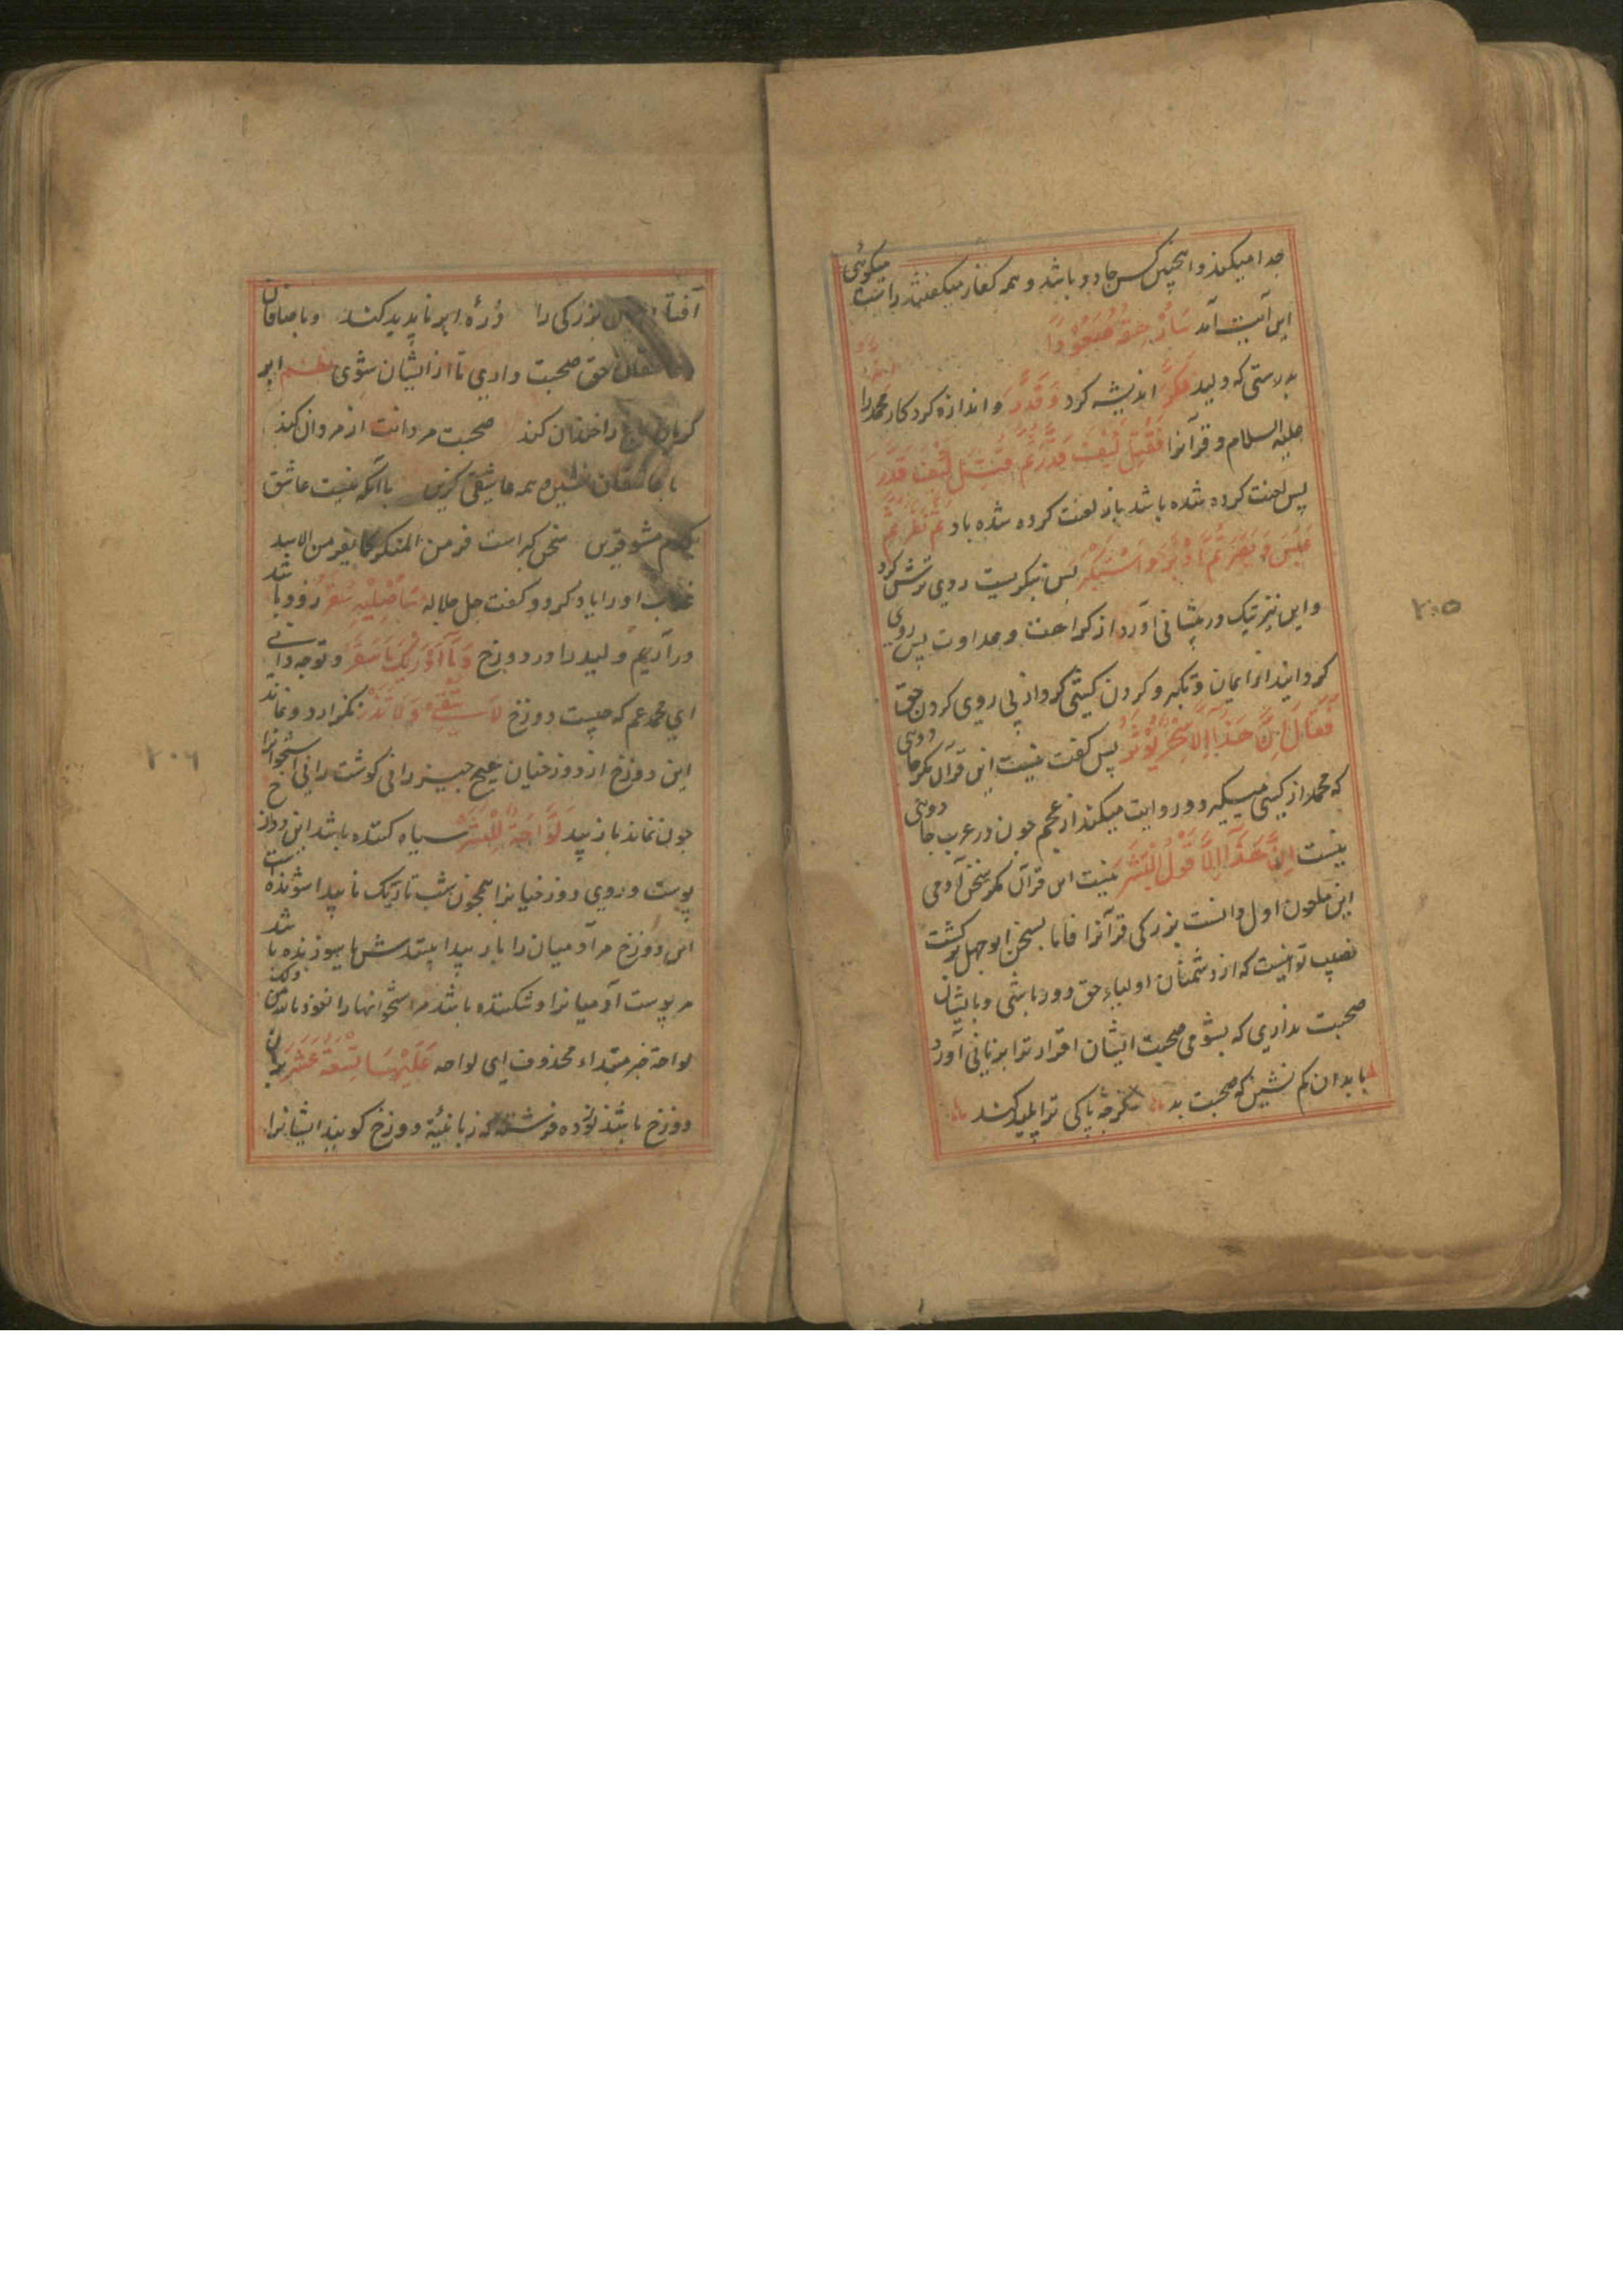 جدا میکند و اینچنین کس جادو باشد و همه کفار میکفتند راست میکوئی
این آیت آمد سَاُرْهِقُهُ صَعُوْدًا
بدرستی که ولید فَكَّرَ اندیشه کرد وَقَدَّرَ و اندازه کرد کار محمد را
علیه السلام و قرآنرا فَقُتِلَ كَيْفَ قَدَّرَ ثُمَّ قُتِلَ كَيْفَ قَدَّرَ
پس لعنت کرده شده باشد باز لعنت کرده شده باد ثُمَّ نَظَرَ ثُمَّ
عَبَسَ وَبَسَرَ ثُمَّ اَدْبَرَ وَاسْتَكْبَرَ پس بنکریست روی ترش کرد
و این نیز تیک در پیشانی آورد از کراهت و عداوت پس روی
کردانید از ایمان و تکبر و کردن کشی کرد از پی روی کردن حق
فَقَالَ اِنْ هٰذَا اِلَّا سِحْرٌ يُّوْثَرُ پس کفت نیست این قرآن مکر جادوی
که محمد از کسی میکیرد و روایت میکند از عجم چون در عرب جادوئی
نیست اِنْ هٰذَا اِلَّا قَوْلُ الْبَشَرِ نیست این قرآن مکر سخن آدمی
این ملعون اول دانست بزرکی قرآنرا فاما بسخن ابو جهل برکشت
نصیب تو اینست که از دشمنان اولیاء حق دور باشی و بایشان
صحبت نداری که بشومی صحبت ایشان اقرار ترا بر زیانی آورد
با بدان کم نشین که صحبت بد کرچه پاکی ترا پلید کند
۲۰۵
آفتاب بزرکی را ذرهٔ ابر ناپدید کند و با صادقان
حق صحبت داری تا از ایشان شوی نظم ابر
کریان باغ را خندان کند صحبت مردانت از مردان کند
با عاشقان نشین و همه عاشقی کزین با آنکه نیست عاشق
مشو قرین سخن کبراست فر من المنکر کما تفر من الاسد
عذاب او را یاد کرد و کفت جل جلاله سَاُصْلِيْهِ سَقَرَ زود باشد
در آریم ولید را در دوزخ وَمَا اَدْرٰىكَ مَا سَقَرُ و تو چه دانی
ای محمد عم که چیست دوزخ لَا تُبْقِيْ وَلَا تَذَرُ نکذارد و نماند
این دوزخ از دوزخیان هیچ چیز را نی کوشت را نی استخوانرا
چون نماند باز پید لَوَّاحَةٌ لِّلْبَشَرِ سیاه کننده باشد این دوزخ
پوست و روی دوزخیانرا همچون شب تاریک نا پیدا سوزنده است
این دوزخ مر آدمیان را بار پیدا یا سوزنده باشد
مر پوست آدمیانرا و شکننده باشد مر استخوانها را نعوذ بالله من ذلک
لواحة خبر مبتداء محذوف ای لواحه عَلَيْهَا تِسْعَةَ عَشَرَ بران
دوزخ باشند نوزده فرشته که زبانیهٔ دوزخ کویند ایشانرا
۲۰۶